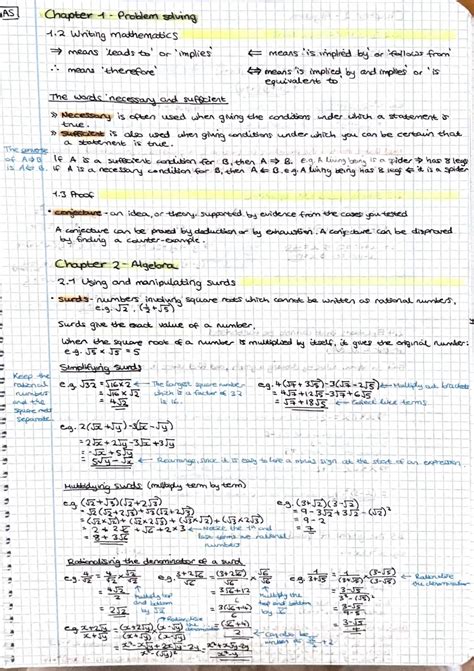 AS
Chapter 1 - Problem solving
1.2 Writing mathematics
⇒ means 'leads to' or 'implies' ⇐ means 'is implied by' or 'follows from'
∴ means 'therefore' ⇔ means 'is implied by and implies' or 'is equivalent to'
The words 'necessary and sufficient'
» Necessary is often used when giving the conditions under which a statement is true.
» Sufficient is also used when giving conditions under which you can be certain that
a statement is true.
The converse of A⇒B is A⇐B.
If A is a sufficient condition for B, then A ⇒ B. e.g. A living being is a spider ⇒ has 8 legs
If A is a necessary condition for B, then A ⇐ B. e.g. A living being has 8 legs ⇐ it is a spider
1.3 Proof
• conjecture - an idea, or theory, supported by evidence from the cases you tested
A conjecture can be proved by deduction or by exhaustion. A conjecture can be disproved
by finding a counter-example.
Chapter 2 - Algebra
2.1 Using and manipulating surds
• surds - numbers involving square roots which cannot be written as rational numbers,
e.g. √2, (½+√5)
Surds give the exact value of a number.
When the square root of a number is multiplied by itself, it gives the original number:
e.g. √5 × √5 = 5
Simplifying surds
Keep the rational numbers and the square roots separate
e.g. √32 = √16×2 ← The largest square number which is a factor of 32 is 16.
= √16 × √2
= 4√2
← Multiply out brackets
← Collect like terms
e.g. 2(√x + √y) - 3(√x - √y)
= 2√x + 2√y - 3√x + 3√y
= -√x + 5√y
= 5√y - √x ← Rearrange, since it is easy to lose a minus sign at the start of an expression.
Multiplying surds (multiply term by term)
e.g. (√2 + √3)(√2 + 2√3)
= √2(√2 + 2√3) + √3(√2 + 2√3)
= (√2×√2) + (√2×2√3) + (√3×√2) + (√3×2√3)
= 8 + 3√6
← Notice the 1st and last terms are rational numbers
e.g. (3+√2)(3-√2)
= 9 - 3√2 + 3√2 - (√2)²
= 9 - 2
= 7
Rationalising the denominator of a surd
Multiply top and bottom by √2
= 2√2
Multiply the top and bottom by √6
← Rationalise the denominator